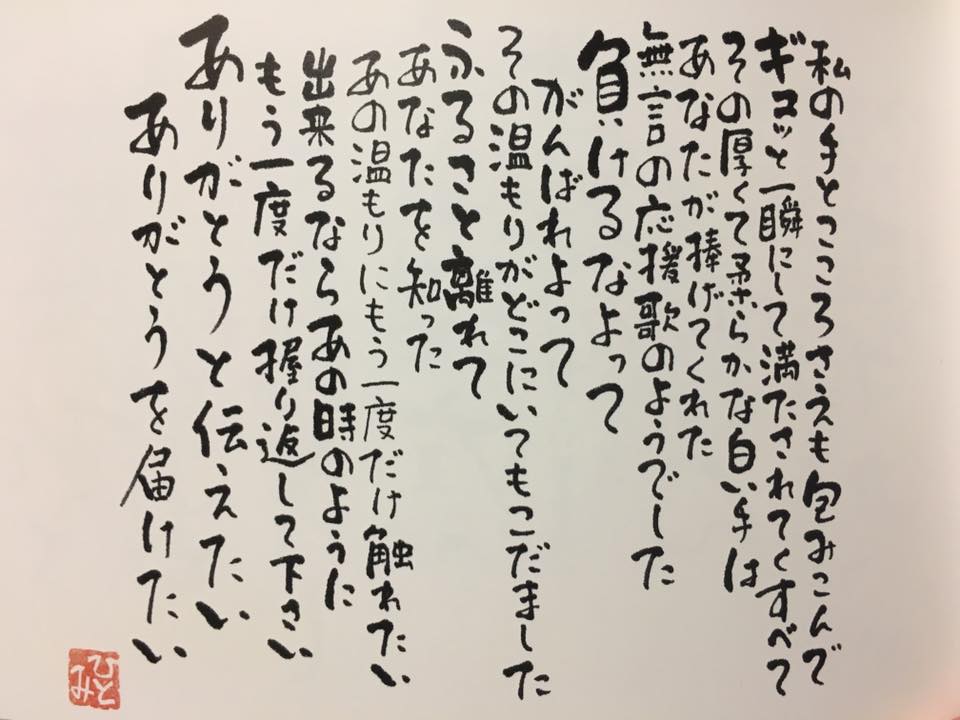 私の手とこころさえも包みこんで
ギュッと一瞬にして満たされてくすべて
その厚くて柔らかな白い手は
あなたが捧げてくれた
無言の応援歌のようでした
負けるなよって
がんばれよって
その温もりがどこにいてもこだました
ふるさと離れて
あなたを知った
あの温もりにもう一度だけ触れたい
出来るならあの時のように
もう一度だけ握り返して下さい
ありがとうと伝えたい
ありがとうを届けたい
ひとみ